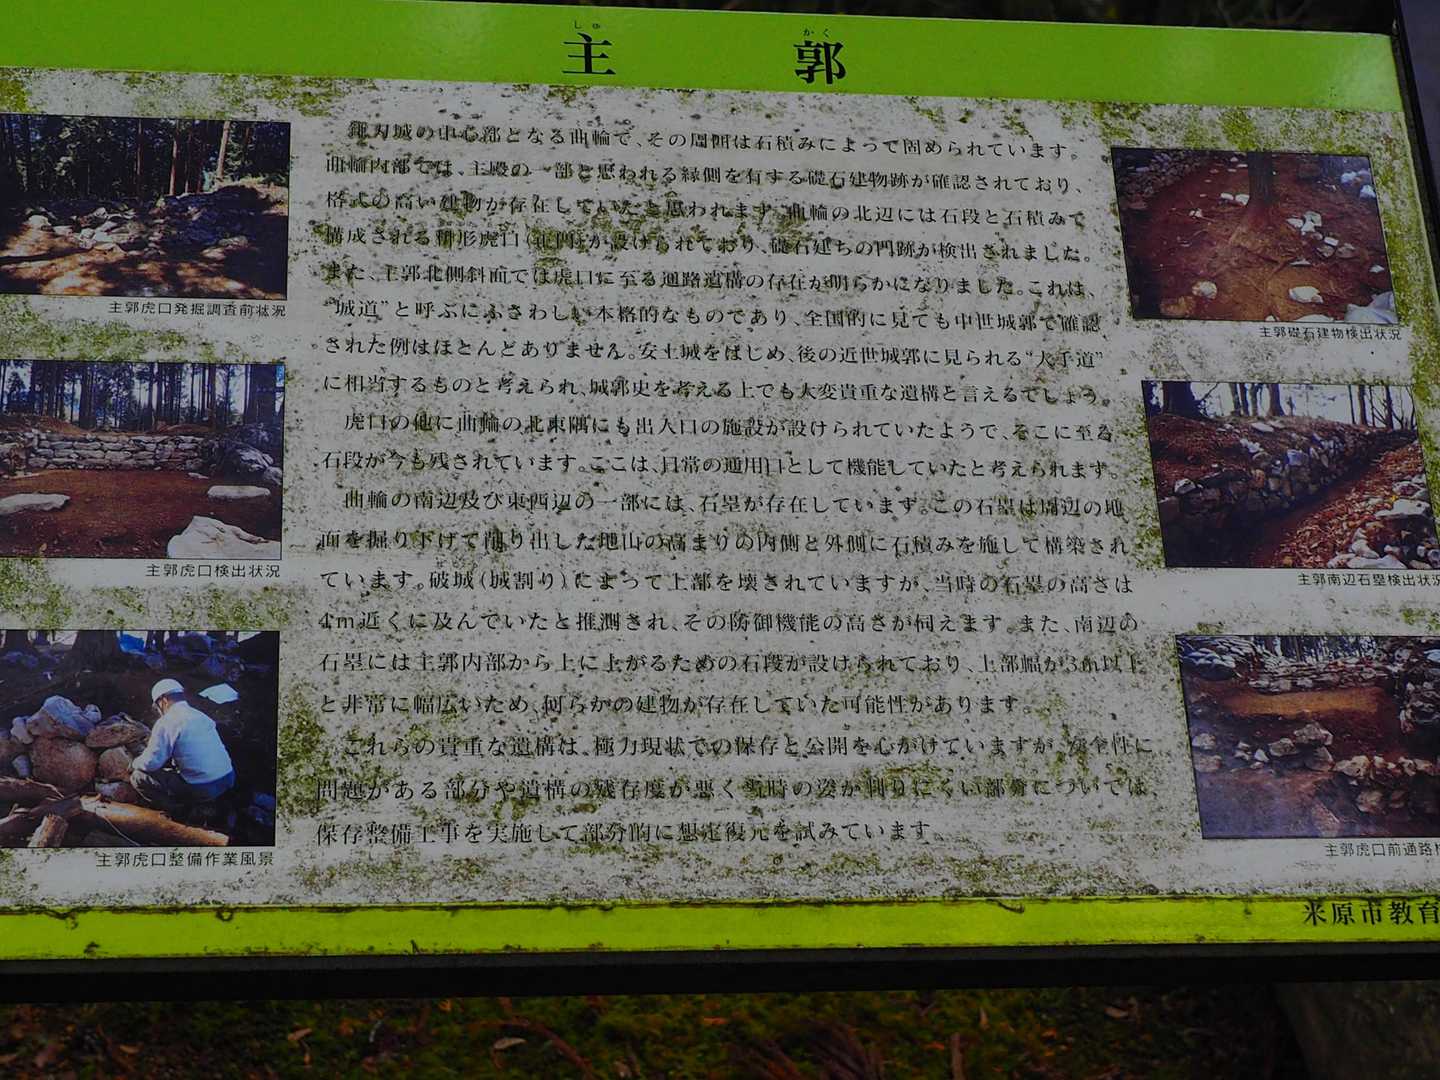 しゅ かく
主 郭
鎌刃城の中心部となる曲輪で、その周囲は石積みによって固められています。
曲輪内部では、主殿の一部と思われる縁側を有する礎石建物跡が確認されており、
格式の高い建物が存在していたと思われます。曲輪の北辺には石段と石積みで
構成される枡形虎口(正門)が設けられており、礎石建ちの門跡が検出されました。
また、主郭北側斜面では虎口に至る通路遺構の存在が明らかになりました。これは、
“城道”と呼ぶにふさわしい本格的なものであり、全国的に見ても中世城郭で確認
された例はほとんどありません。安土城をはじめ、後の近世城郭に見られる“大手道”
に相当するものと考えられ、城郭史を考える上でも大変貴重な遺構と言えるでしょう。
虎口の他に曲輪の北東隅にも出入口の施設が設けられていたようで、そこに至る
石段が今も残されています。ここは、日常の通用口として機能していたと考えられます。
曲輪の南辺及び東西辺の一部には、石塁が存在しています。この石塁は周辺の地
面を掘り下げて削り出した地山の高まりの内側と外側に石積みを施して構築され
ています。破城(城割り)によって上部を壊されていますが、当時の石塁の高さは
4m近くに及んでいたと推測され、その防御機能の高さが伺えます。また、南辺の
石塁には主郭内部から上に上がるための石段が設けられており、上部幅が3m以上
と非常に幅広いため、何らかの建物が存在していた可能性があります。
これらの貴重な遺構は、極力現状での保存と公開を心がけていますが、安全性に
問題がある部分や遺構の残存度が悪く当時の姿が判りにくい部分については、
保存整備工事を実施して部分的に想定復元を試みています。
主郭虎口発掘調査前状況
主郭虎口検出状況
主郭虎口整備作業風景
主郭礎石建物検出状況
主郭南辺石塁検出状況
主郭虎口前通路
米原市教育